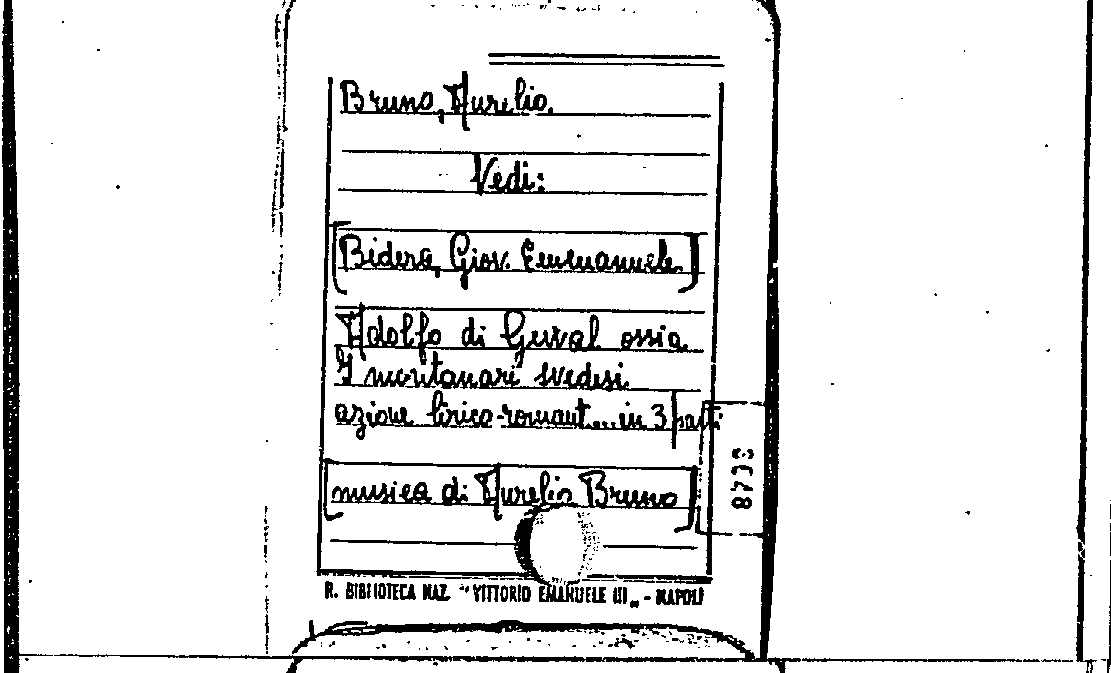 Bruno, Aurelio.
Vedi:
[Bidera, Giov. Emmanuele]
Adolfo di Gerval ossia
I montanari svedesi
azione lirico-romant... in 3 parti
[musica di Aurelio Bruno]
R. BIBLIOTECA NAZ. "VITTORIO EMANUELE III„ - NAPOLI